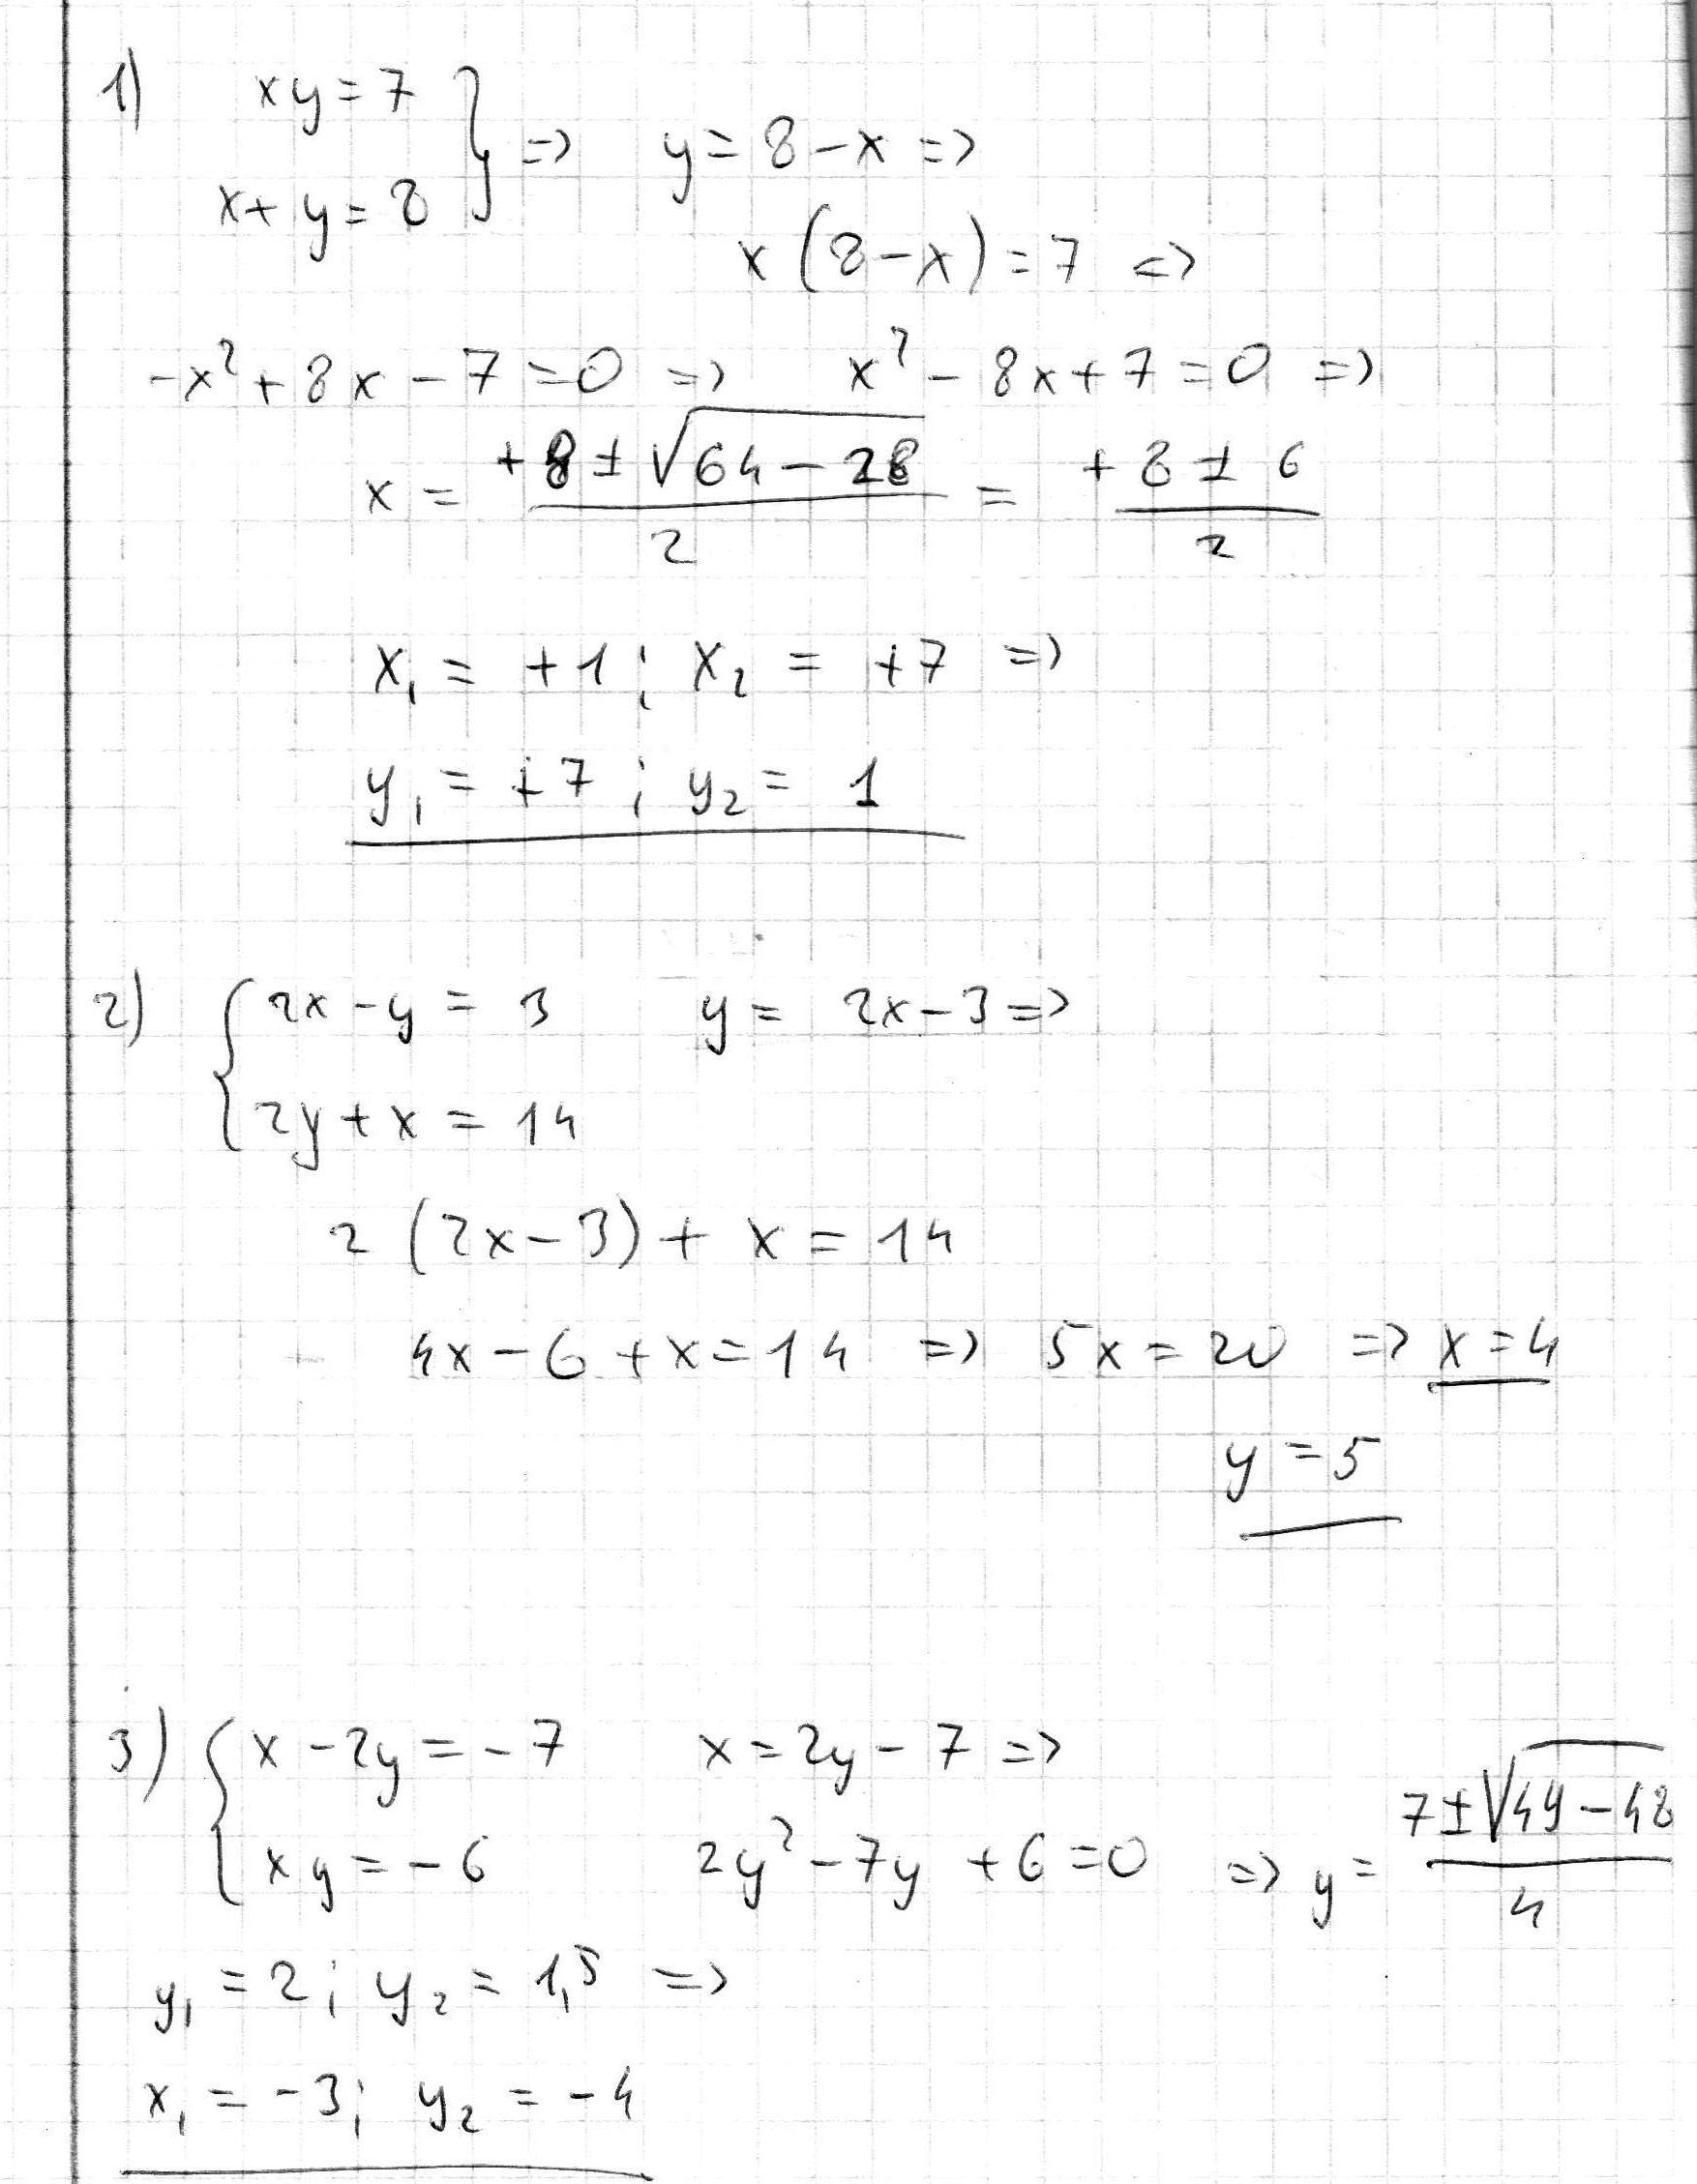 1) xy = 7
x + y = 8 } => y = 8 - x =>
x (8 - x) = 7 =>
-x² + 8x - 7 = 0 => x² - 8x + 7 = 0 =>
x = (+8 ± √(64 - 28)) / 2 = (+8 ± 6) / 2
x₁ = +1 ; x₂ = +7 =>
y₁ = +7 ; y₂ = 1
2) { 2x - y = 3 y = 2x - 3 =>
2y + x = 14
2 (2x - 3) + x = 14
4x - 6 + x = 14 => 5x = 20 => x = 4
y = 5
3) { x - 2y = -7 x = 2y - 7 =>
xy = -6 2y² - 7y + 6 = 0 => y = (7 ± √(49 - 48)) / 4
y₁ = 2 ; y₂ = 1,5 =>
x₁ = -3 ; y₂ = -4